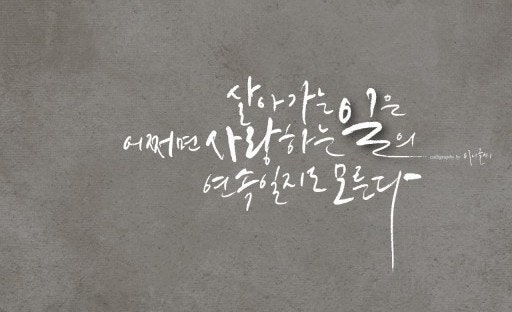 살아가는 일은
어쩌면 사랑하는 일의
연속일지도 모른다
calligraphy by